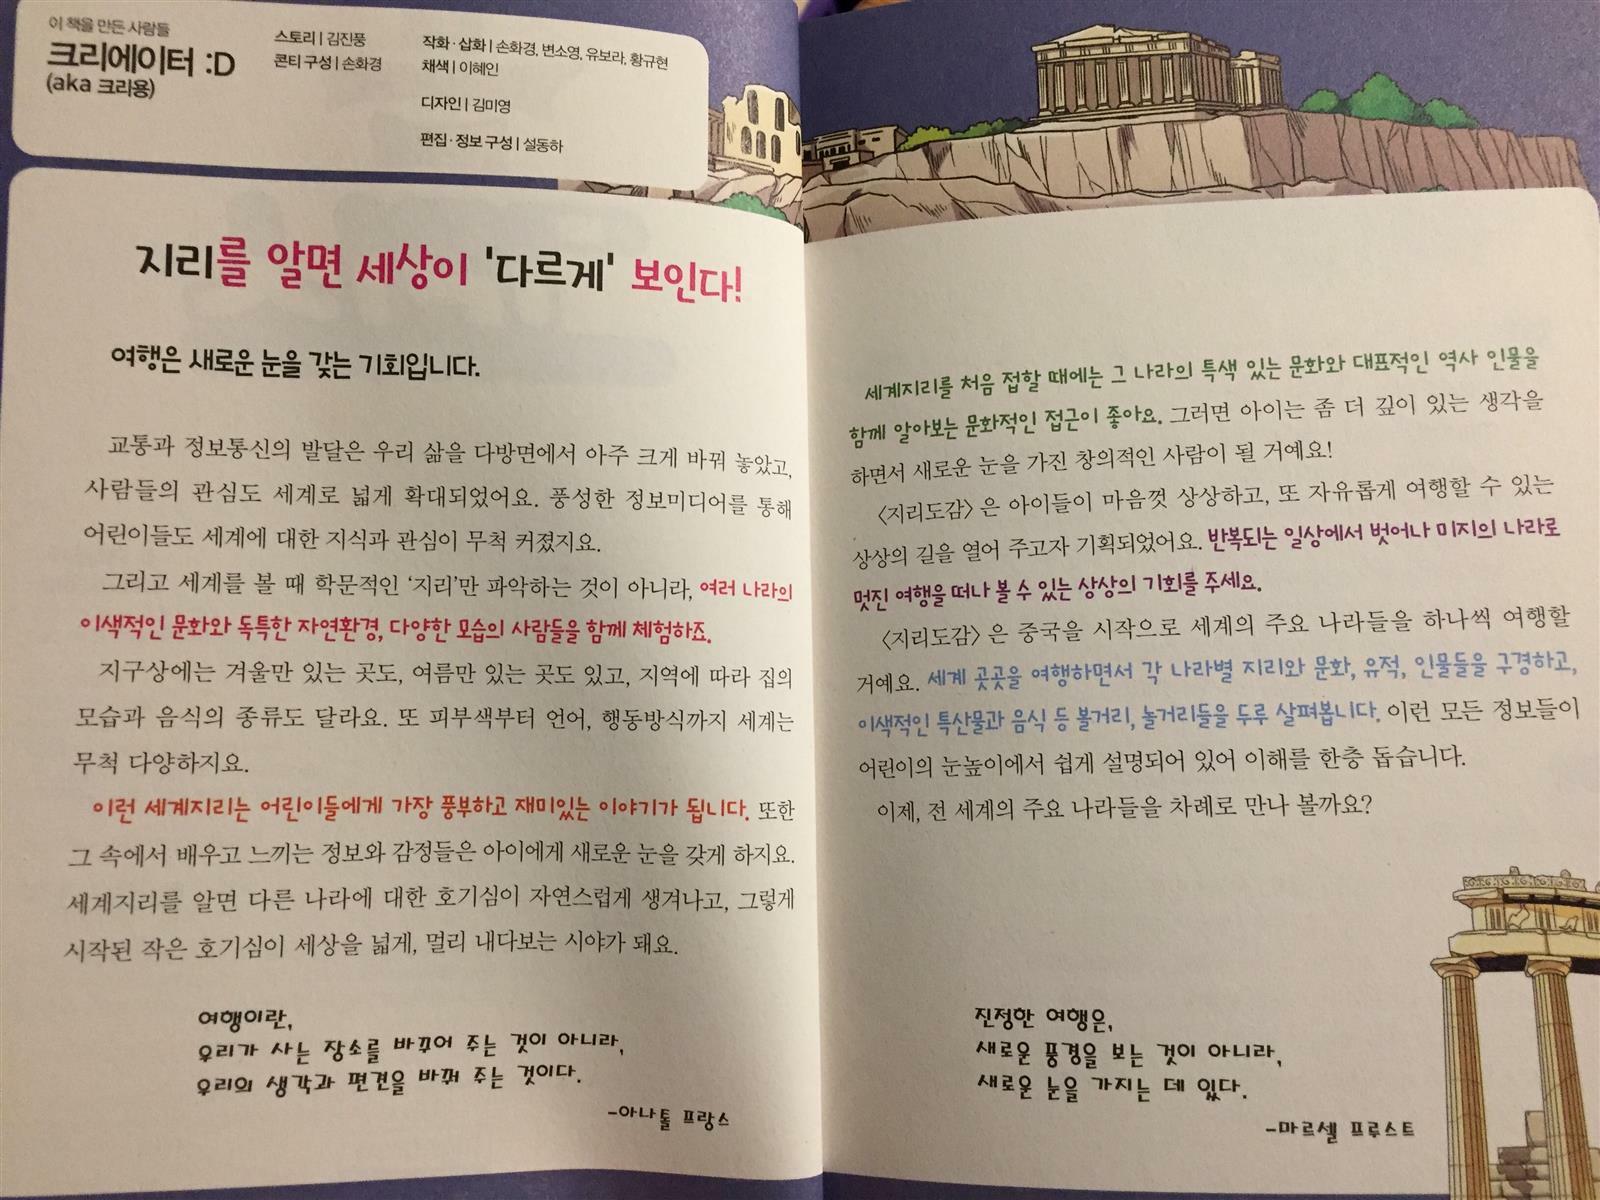 이 책을 만든 사람들
크리에이터 :D
(aka 크리용)
스토리 | 김진풍
콘티 구성 | 손화경
작화·삽화 | 손화경, 변소영, 유보라, 황규현
채색 | 이혜인
디자인 | 김미영
편집·정보 구성 | 설동하
지리를 알면 세상이 '다르게' 보인다!
여행은 새로운 눈을 갖는 기회입니다.
교통과 정보통신의 발달은 우리 삶을 다방면에서 아주 크게 바꿔 놓았고,
사람들의 관심도 세계로 넓게 확대되었어요. 풍성한 정보미디어를 통해
어린이들도 세계에 대한 지식과 관심이 무척 커졌지요.
그리고 세계를 볼 때 학문적인 '지리'만 파악하는 것이 아니라, 여러 나라의
이색적인 문화와 독특한 자연환경, 다양한 모습의 사람들을 함께 체험하죠.
지구상에는 겨울만 있는 곳도, 여름만 있는 곳도 있고, 지역에 따라 집의
모습과 음식의 종류도 달라요. 또 피부색부터 언어, 행동방식까지 세계는
무척 다양하지요.
이런 세계지리는 어린이들에게 가장 풍부하고 재미있는 이야기가 됩니다. 또한
그 속에서 배우고 느끼는 정보와 감정들은 아이에게 새로운 눈을 갖게 하지요.
세계지리를 알면 다른 나라에 대한 호기심이 자연스럽게 생겨나고, 그렇게
시작된 작은 호기심이 세상을 넓게, 멀리 내다보는 시야가 돼요.
여행이란,
우리가 사는 장소를 바꾸어 주는 것이 아니라,
우리의 생각과 편견을 바꿔 주는 것이다.
-아나톨 프랑스
세계지리를 처음 접할 때에는 그 나라의 특색 있는 문화와 대표적인 역사 인물을
함께 알아보는 문화적인 접근이 좋아요. 그러면 아이는 좀 더 깊이 있는 생각을
하면서 새로운 눈을 가진 창의적인 사람이 될 거예요!
〈지리도감〉은 아이들이 마음껏 상상하고, 또 자유롭게 여행할 수 있는
상상의 길을 열어 주고자 기획되었어요. 반복되는 일상에서 벗어나 미지의 나라로
멋진 여행을 떠나 볼 수 있는 상상의 기회를 주세요.
〈지리도감〉은 중국을 시작으로 세계의 주요 나라들을 하나씩 여행할
거예요. 세계 곳곳을 여행하면서 각 나라별 지리와 문화, 유적, 인물들을 구경하고,
이색적인 특산물과 음식 등 볼거리, 놀거리들을 두루 살펴봅니다. 이런 모든 정보들이
어린이의 눈높이에서 쉽게 설명되어 있어 이해를 한층 돕습니다.
이제, 전 세계의 주요 나라들을 차례로 만나 볼까요?
진정한 여행은,
새로운 풍경을 보는 것이 아니라,
새로운 눈을 가지는 데 있다.
-마르셀 프루스트